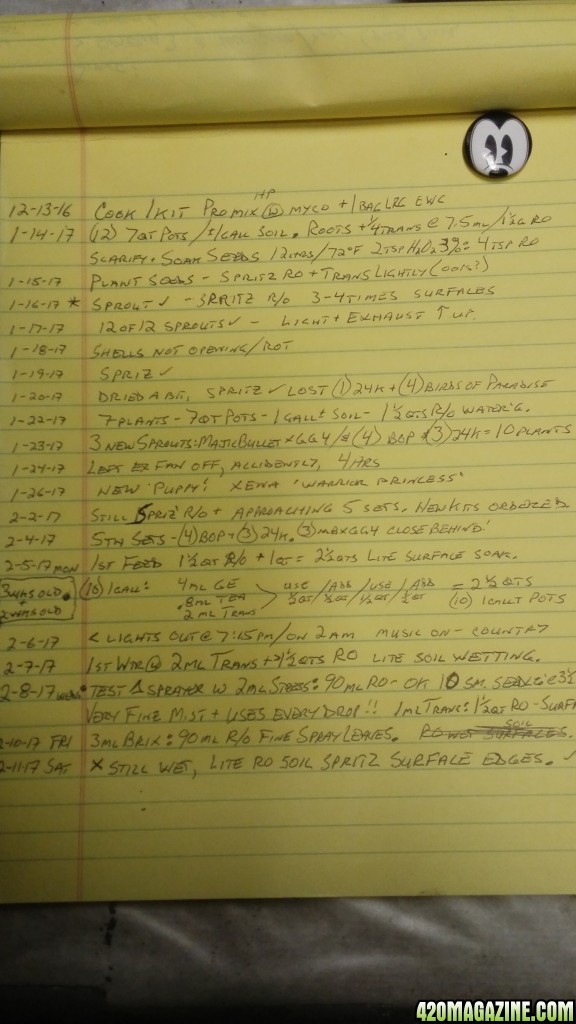 HP
12-13-16 COOK 1 KIT PROMIX W MYCO + 1 BAG LRG EWC
1-14-17 (12) 7QT POTS / ±1 GALL SOIL. ROOTS + 1/4 TRANS @ 7.5ML / 1½G RO
SCARIFY. SOAK SEEDS 12HRS/72°F 2TSP H2O2 3%: 4TSP RO
1-15-17 PLANT SEEDS - SPRITZ RO + TRANS LIGHTLY
1-16-17 * SPROUT ✓ - SPRITZ R/O 3-4 TIMES SURFACES
1-17-17 12 OF 12 SPROUTS ✓ - LIGHT + EXHAUST ↑ UP.
1-18-17 SHELLS NOT OPENING/ROT
1-19-17 SPRITZ ✓
1-20-17 DRIED A BIT, SPRITZ ✓ LOST (1) 24K + (4) BIRDS OF PARADISE
1-22-17 7 PLANTS - 7QT POTS - 1 GALL± SOIL - 1½ QTS R/O WATER'G.
1-23-17 3 NEW SPROUTS: MAJIC BULLET X GG4 / (4) BOP + (3) 24K = 10 PLANTS
1-24-17 LEFT EX FAN OFF, ACCIDENTLY, 4 HRS
1-26-17 NEW 'PUPPY'! XENA 'WARRIOR PRINCESS'
2-2-17 STILL SPRITZ R/O + APPROACHING 5 SETS. HEN KITS ORDERED
2-4-17 5TH SETS - (4) BOP + (3) 24K. (3) MBXGG4 CLOSE BEHIND!
2-5-17 MON 1ST FEED 1½QT R/O + 1QT = 2½QTS LITE SURFACE SOAK.
3 WKS OLD + 2 WKS OLD (10) 1GALL: 4ML GE USE / ADD / USE / ADD = 2½ QTS
.8ML TEA ½QT / / 1½QT / (10) 1GALL± POTS
2ML TRANS
2-6-17 < LIGHTS OUT @ 7:15PM/ON 2AM MUSIC ON - COUNTRY
2-7-17 1ST WTR @ 2ML TRANS + 1½QTS RO LITE SOIL WETTING.
2-8-17 WEDS TEST SPRAYER W 2ML STRESS: 90ML RO - OK 10 SM. SEEDLG @
VERY FINE MIST + USES EVERY DROP!! 1ML TRANS: 1½QT RO - SURF
2-10-17 FRI 3ML BRIX: 90ML R/O FINE SPRAY LEAVES. RO WET SOIL SURFACES.
2-11-17 SAT X STILL WET, LITE RO SOIL SPRITZ SURFACE EDGES. ✓
420MAGAZINE.COM